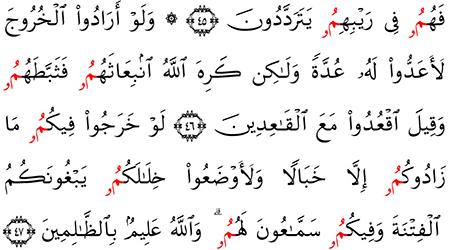 فَهُمُۥ فِى رَيْبِهِمُۥ يَتَرَدَّدُونَ ٤٥ ۞ وَلَوْ أَرَادُوا۟ ٱلْخُرُوجَ
لَأَعَدُّوا۟ لَهُۥ عُدَّةً وَلَٰكِن كَرِهَ ٱللَّهُ ٱنۢبِعَاثَهُمُۥ فَثَبَّطَهُمُۥ
وَقِيلَ ٱقْعُدُوا۟ مَعَ ٱلْقَٰعِدِينَ ٤٦ لَوْ خَرَجُوا۟ فِيكُمُۥ مَا
زَادُوكُمُۥ إِلَّا خَبَالًا وَلَأَوْضَعُوا۟ خِلَٰلَكُمُۥ يَبْغُونَكُمُ
ٱلْفِتْنَةَ وَفِيكُمُۥ سَمَّٰعُونَ لَهُمُۥ ۗ وَٱللَّهُ عَلِيمٌۢ بِٱلظَّٰلِمِينَ ٤٧